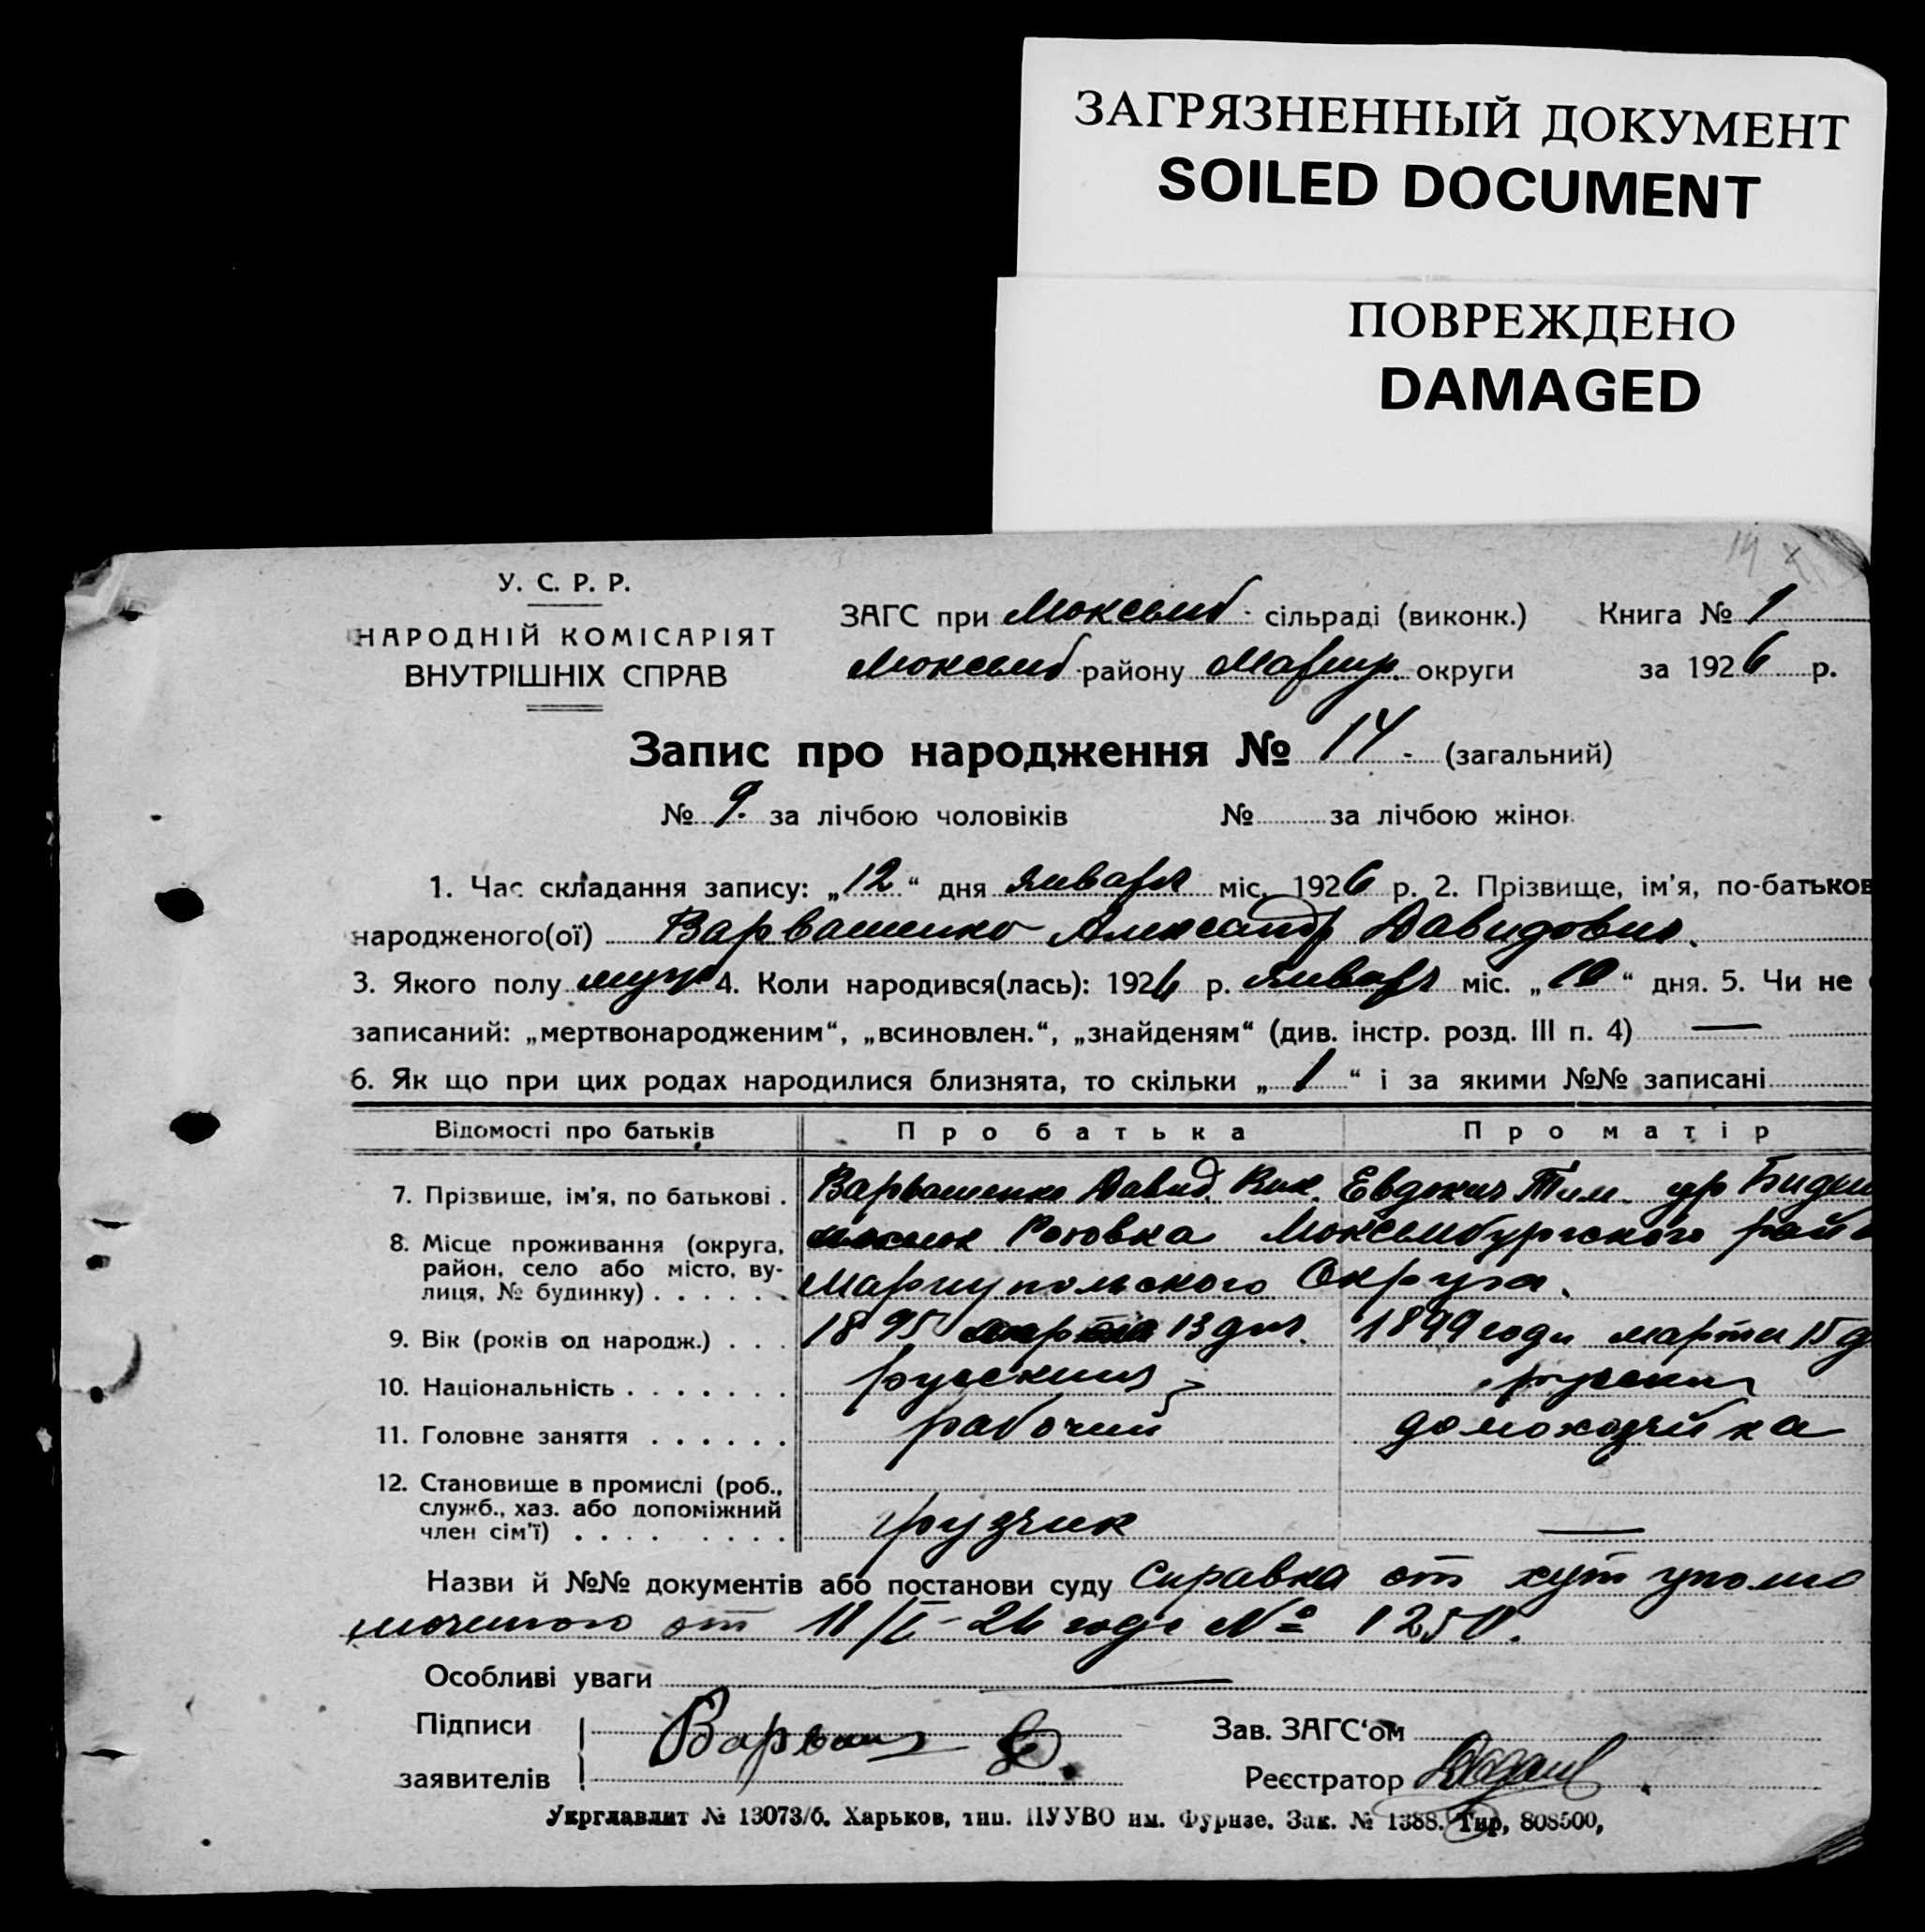 ЗАГРЯЗНЕННЫЙ ДОКУМЕНТ
SOILED DOCUMENT
ПОВРЕЖДЕНО
DAMAGED
14
У. С. Р. Р.
НАРОДНІЙ КОМІСАРІЯТ
ВНУТРІШНІХ СПРАВ
ЗАГС при сільраді (виконк.) Книга № 1
району Мариуп. округи за 1926 р.
Запис про народження № 14 (загальний)
№ 9. за лічбою чоловіків № за лічбою жінок
1. Час складання запису: „12“ дня января міс. 1926 р. 2. Прізвище, ім'я, по-батьков
народженого(ої) Варвашенко Александр Давидович.
3. Якого полу муж 4. Коли народився(лась): 1926 р. января міс. „10“ дня. 5. Чи не
записаний: „мертвонародженим“, „всиновлен.“, „знайденям“ (див. інстр. розд. III п. 4) —
6. Як що при цих родах народилися близнята, то скільки „1“ і за якими №№ записані
Відомості про батьків Про батька Про матір
7. Прізвище, ім'я, по батькові . Варвашенко Давид Евдокия Тим. ур
8. Місце проживання (округа, район, село або місто, вулиця, № будинку) . . . . . . Роювка Люксембургского рай
Мариупольского Округа.
9. Вік (років од народж.) . . . 1895 марта 13 дня. 1899 года марта 15 д
10. Національність . . . . . . . русский русская
11. Головне заняття . . . . . . рабочий домохозяйка
12. Становище в промислі (роб., служб., хаз. або допоміжний член сім'ї) . . . . . . . . грузчик —
Назви й №№ документів або постанови суду Справка от хут уполно
моченого от 11/I-26 года № 1250.
Особливі уваги —
Підписи
заявителів Варваш
Зав. ЗАГС'ом
Реєстратор
Укрглавлит № 13073/б. Харьков, тип. ПУУВО им. Фрунзе. Зак. № 1388. Тир, 808500,